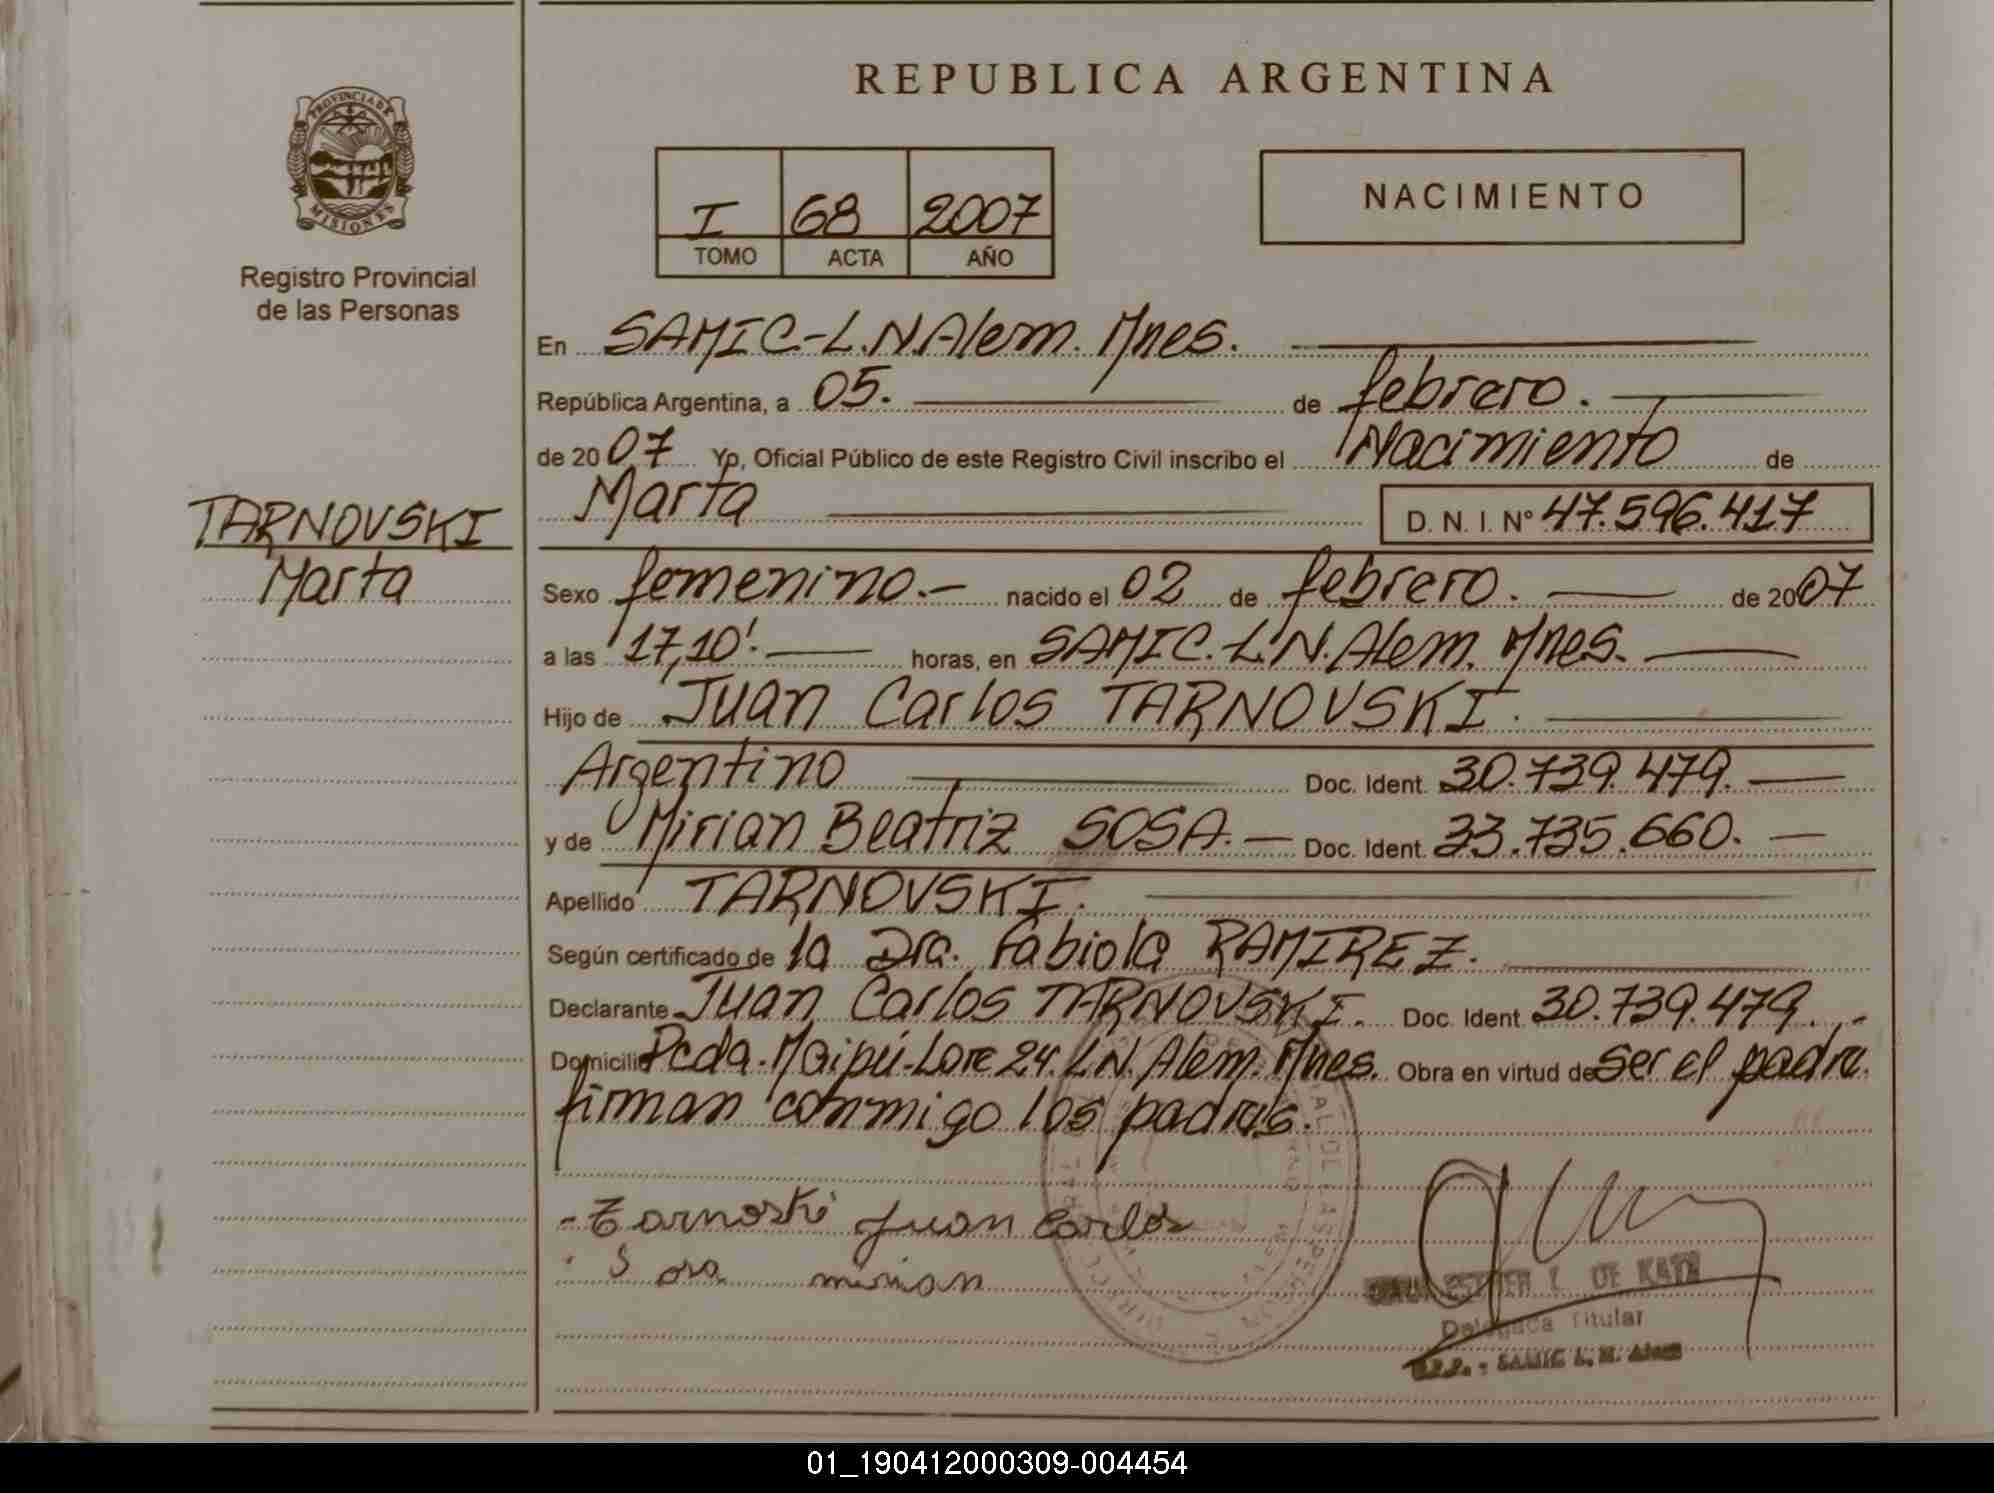 REPUBLICA ARGENTINA
PROVINCIA DE
MISIONES
Registro Provincial
de las Personas
I 68 2007
TOMO ACTA AÑO
NACIMIENTO
En SAMIC-L.N.Alem. Mnes.
República Argentina, a 05. de febrero.
de 2007 Yo, Oficial Público de este Registro Civil inscribo el Nacimiento de
Marta D. N. I. Nº 47.596.417
TARNOVSKI
Marta
Sexo femenino.- nacido el 02 de febrero. de 2007
a las 17,10'. horas, en SAMIC. L.N. Alem. Mnes.
Hijo de Juan Carlos TARNOVSKI.
Argentino Doc. Ident. 30.739.479.
y de Mirian Beatriz SOSA.- Doc. Ident. 33.735.660.
Apellido TARNOVSKI.
Según certificado de la Dra. Fabiola RAMIREZ.
Declarante Juan Carlos TARNOVSKI. Doc. Ident. 30.739.479.
Domicilio Pcda. Maipú-Lote 24. L.N. Alem. Mnes. Obra en virtud de ser el padre.
firman conmigo los padres.
- Tarnoski Juan Carlos
Sosa mirian
ESTHER DE
Delegada Titular
R.P.P. - SAMIC L. N. Alem
01_190412000309-004454